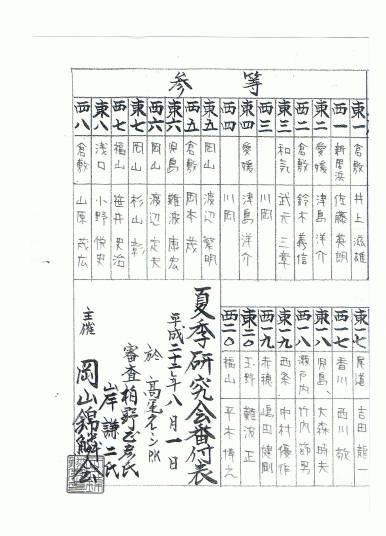 参等
東一 倉敷 井上滋雄
西一 新居浜 佐藤英朗
東二 愛媛 津島洋介
西二 倉敷 鈴木義信
東三 和気 武元三章
西三 川岡
東四 愛媛 津島洋介
西四 川岡
東五 岡山 渡辺繁明
西五 倉敷 岡本茂
東六 児島 難波康宏
西六 岡山 渡辺定夫
東七 岡山 杉山彰
西七 福山 笹井史治
東八 浅口 小野悦史
西八 倉敷 山原茂広
東一七 尾道 吉田龍一
西一七 香川 西川敬
東一八 児島 大森時夫
西一八 瀬戸内 竹内節男
東一九 西条 中村優作
西一九 赤穂 嶋田健剛
東二〇 玉野 難波正
西二〇 福山 平木博之
夏季研究会番付表
平成二十二年八月一日
於 高尾イシンPK
審査 柏野 氏
山岸謙二氏
主催 岡山錦鱗会